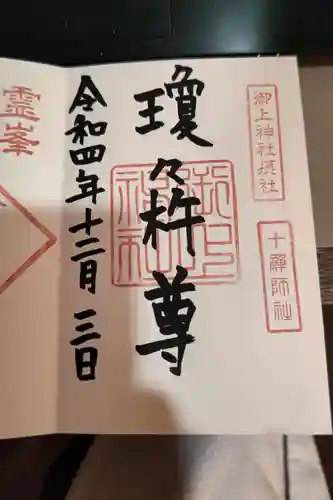 御上神社摂社
十禅師社
瓊々杵尊
御上神社
令和四年十二月三日
霊峯